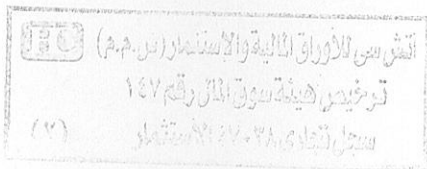 اتش سى للأوراق المالية والاستثمار (س.م.م) HC
ترخيص هيئة سوق المال رقم ١٤٧
سجل تجارى الاستثمار (٢)